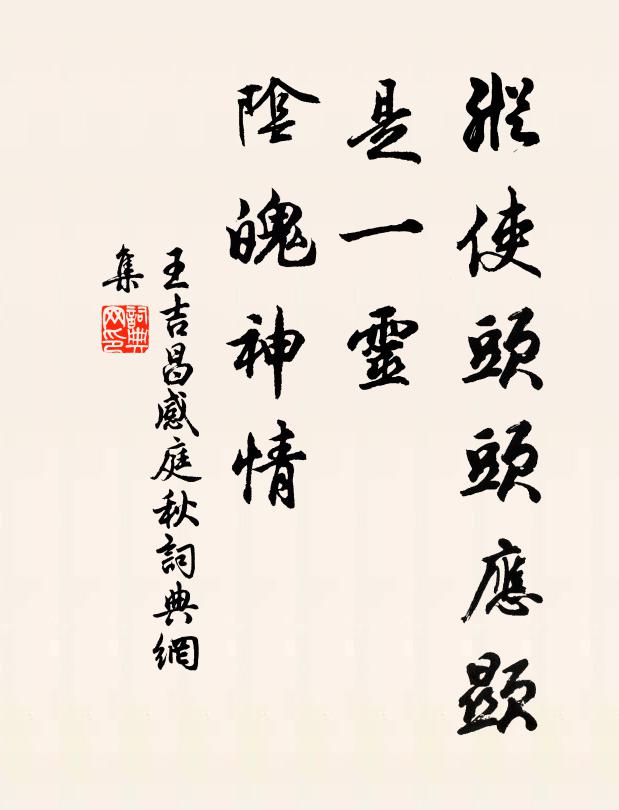 縱使頭頭應顯
是一靈
陰魄神情
王吉昌感庭秋詞典網
集
詞典
网印